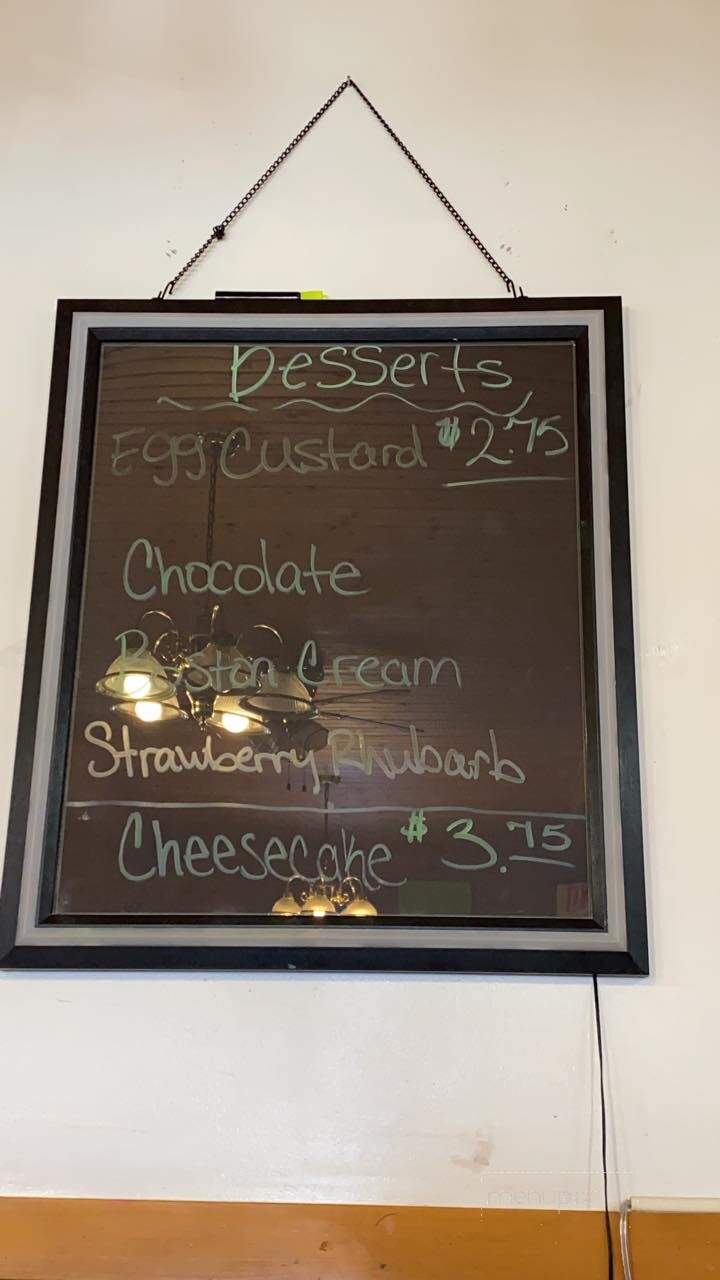 Desserts
Egg Custard $2.75
Chocolate
Boston Cream
Strawberry Rhubarb
Cheesecake $3.75
menupix